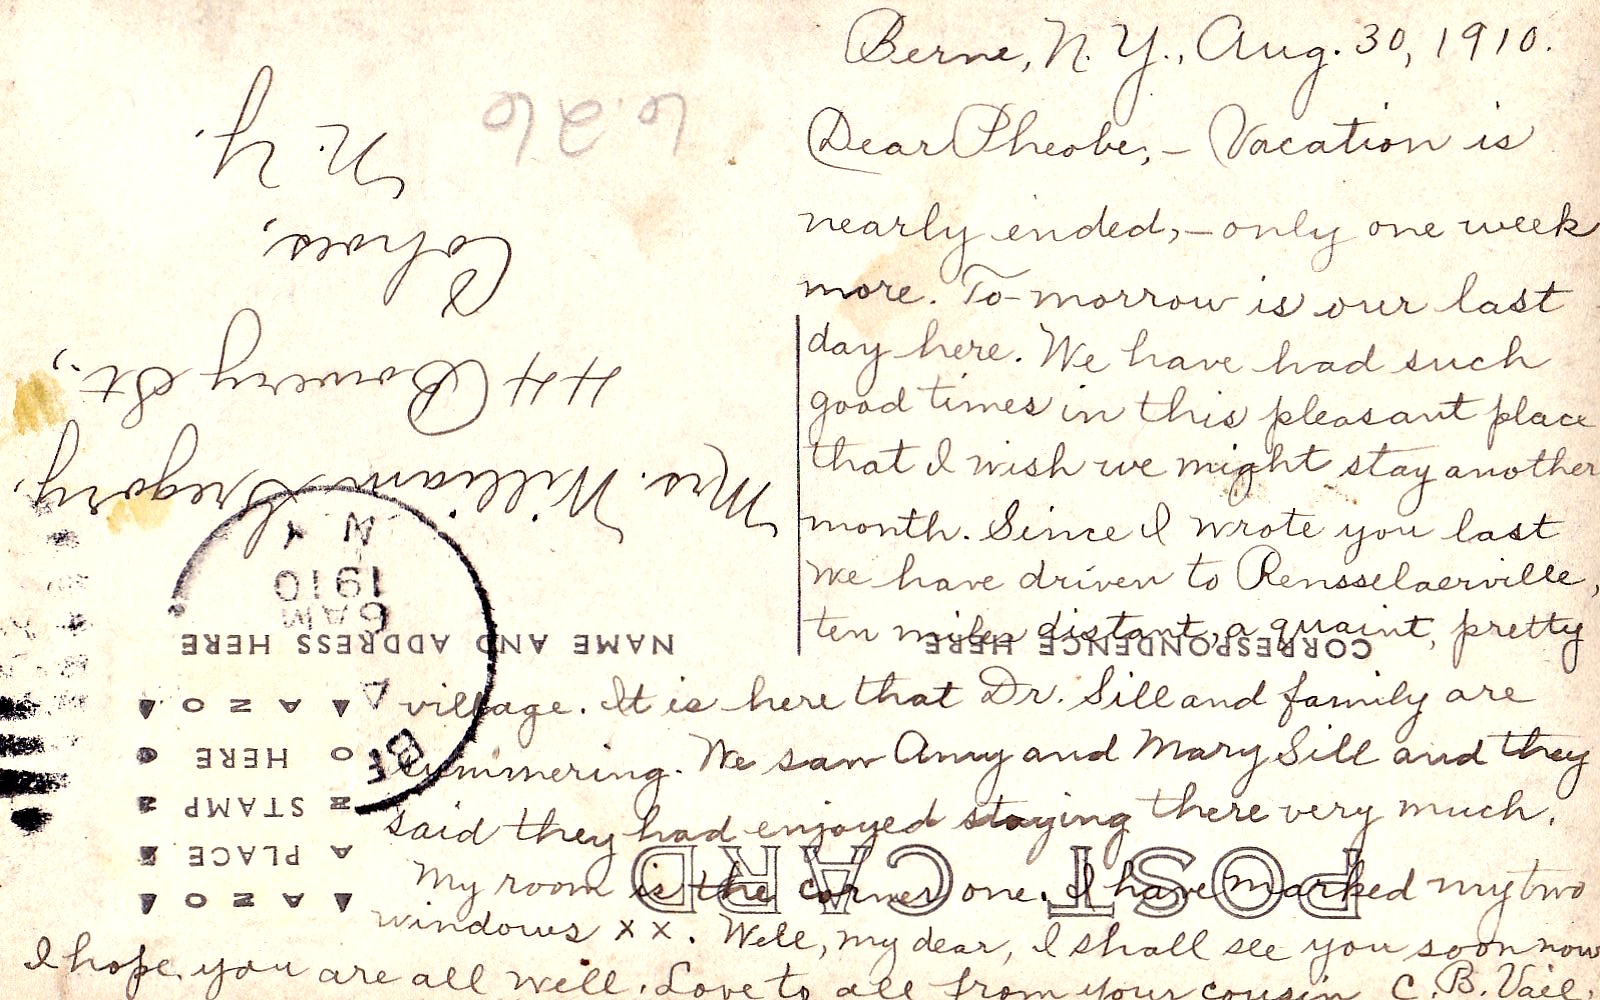 Berne, N. Y., Aug. 30, 1910.
Dear Pheobe,— Vacation is
nearly ended,— only one week
more. To-morrow is our last
day here. We have had such
good times in this pleasant place
that I wish we might stay another
month. Since I wrote you last
we have driven to Rensselaerville,
ten miles distant, a quaint, pretty
village. It is here that Dr. Sill and family are
summering. We saw Amy and Mary Sill and they
said they had enjoyed staying there very much.
My room is the corner one. I have marked my two
windows x x. Well, my dear, I shall see you soon now
I hope you are all well. Love to all from your cousin C. B. Vail.
POST CARD
CORRESPONDENCE HERE
NAME AND ADDRESS HERE
AZO
PLACE
STAMP
HERE
AZO
BE
6 AM
1910
N.Y.
Mrs. William Gregory,
44 Bowery St.,
Cohoes,
N. Y.
6.26